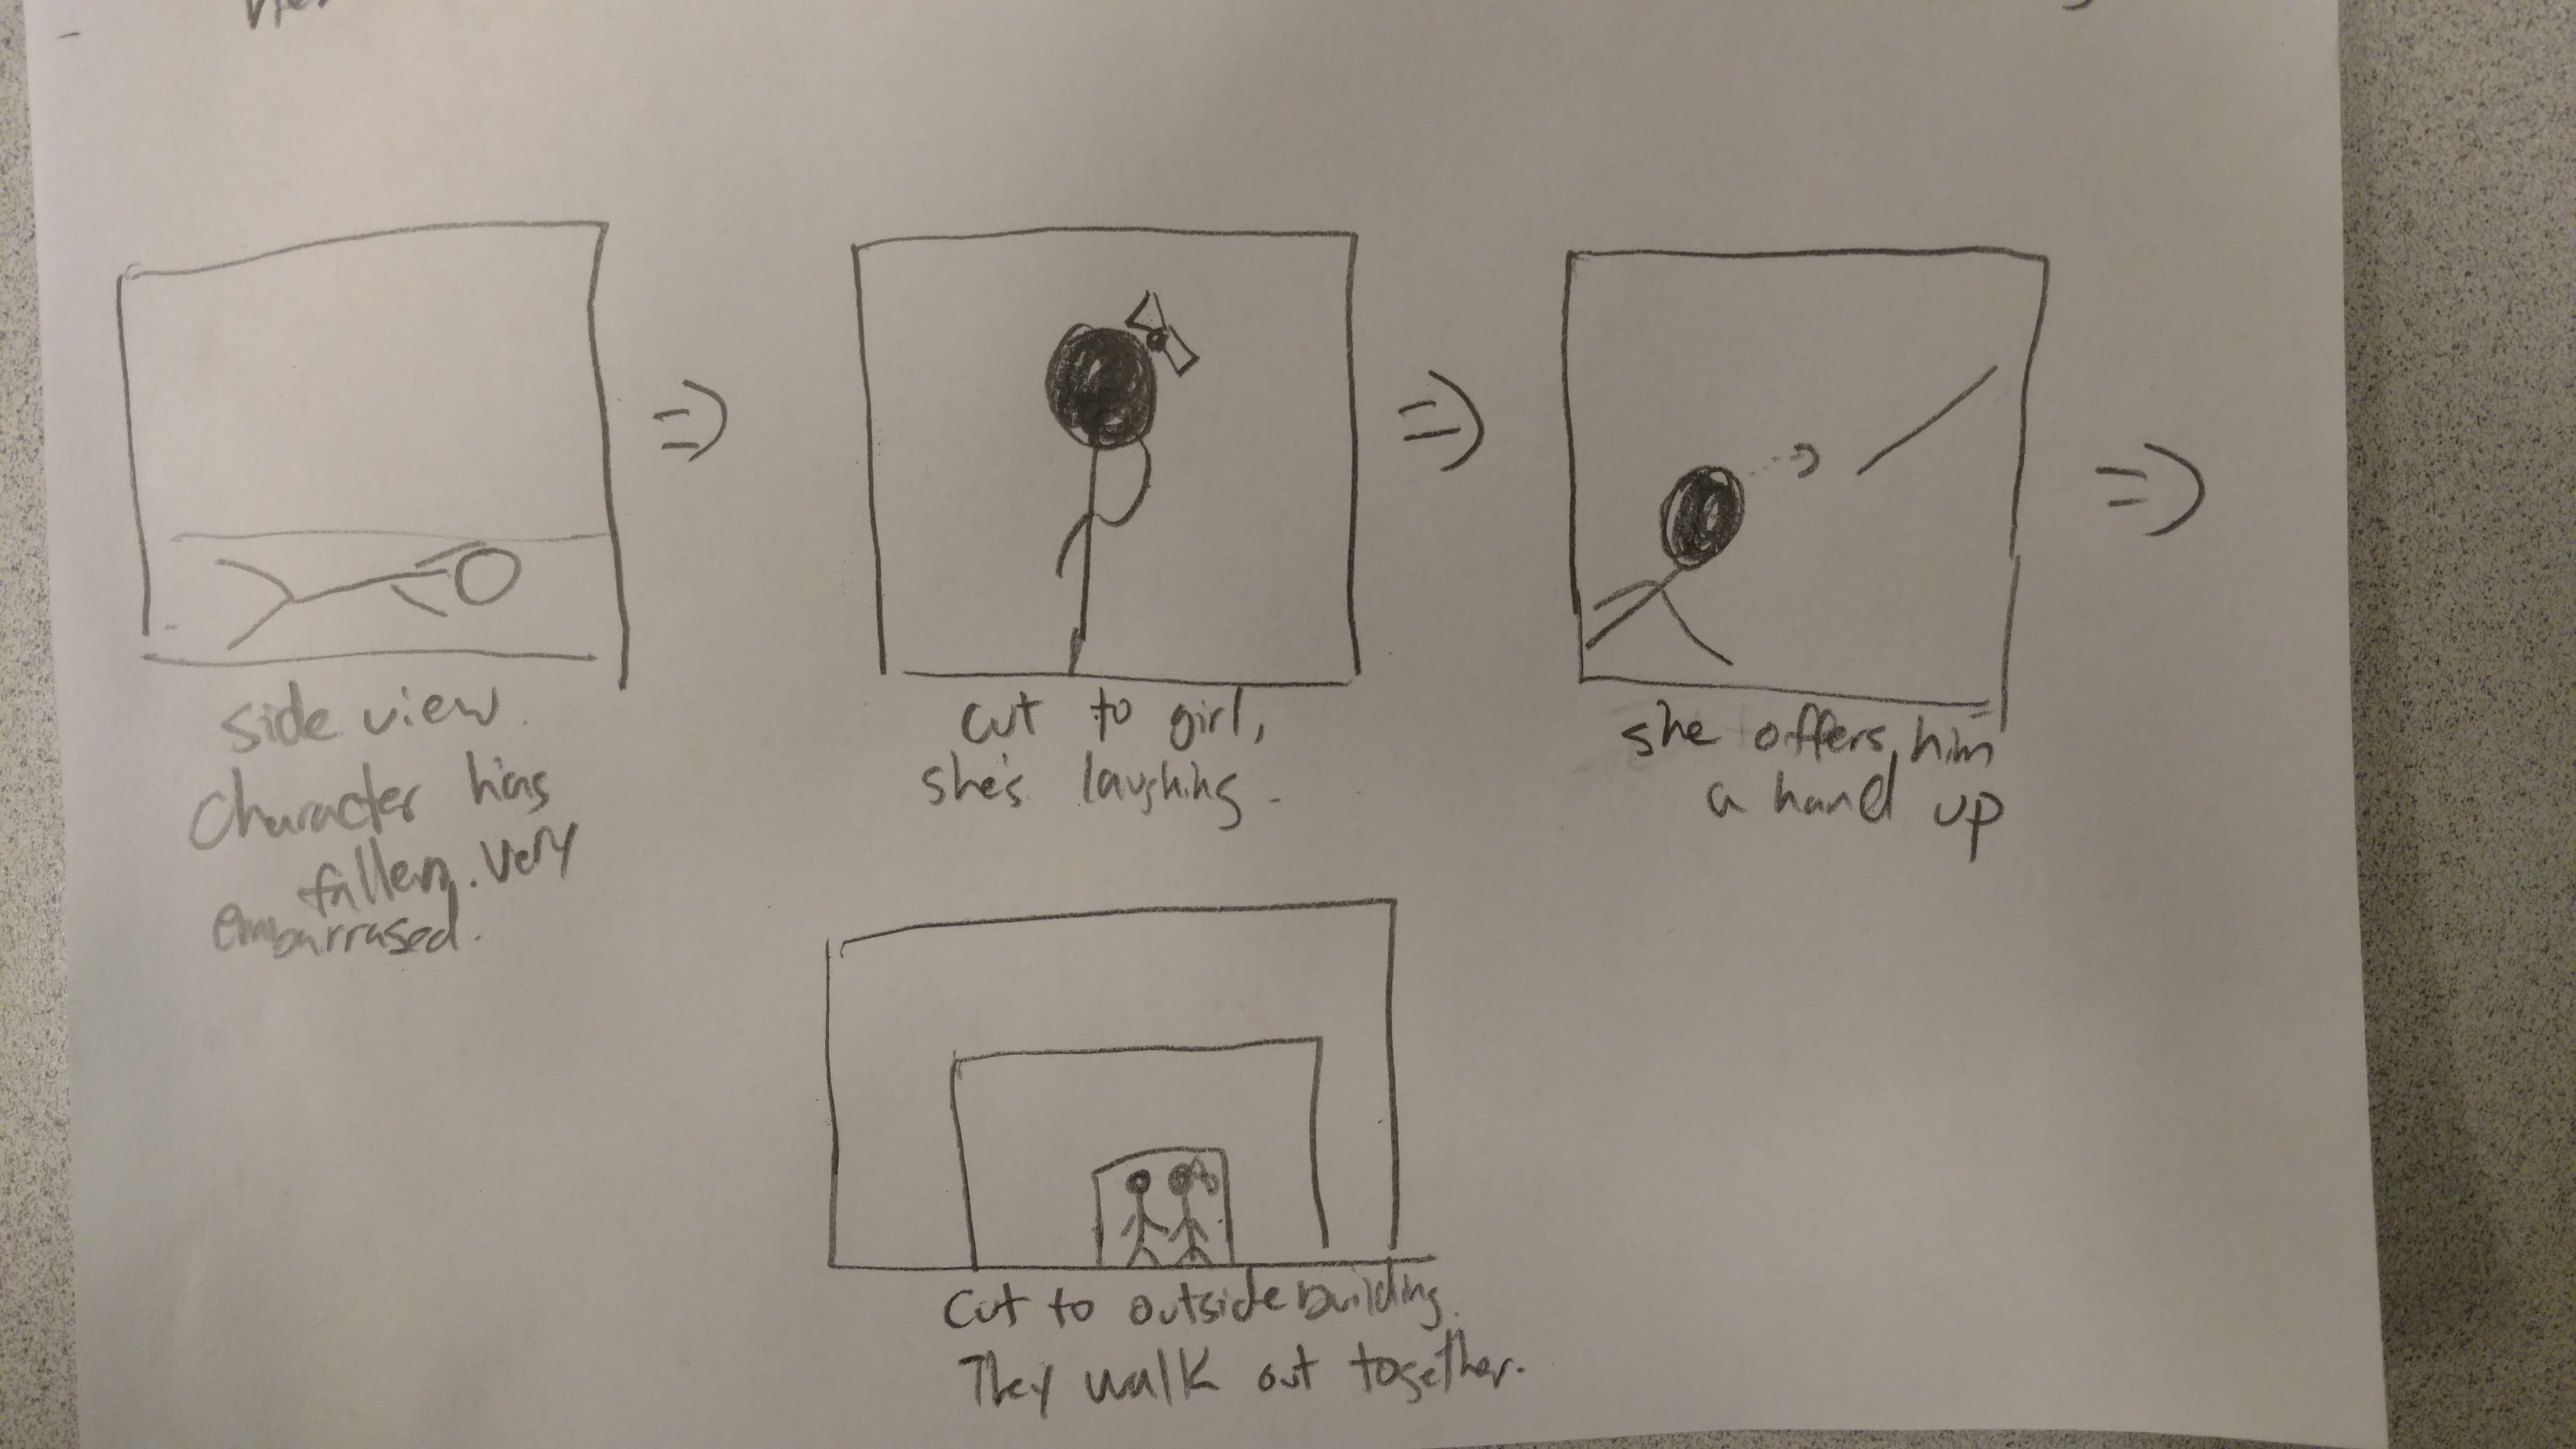 side view.
Character has
fallen. Very
embarrased.
cut to girl,
she's laughing.
she offers him
a hand up
Cut to outside building.
They walk out together.